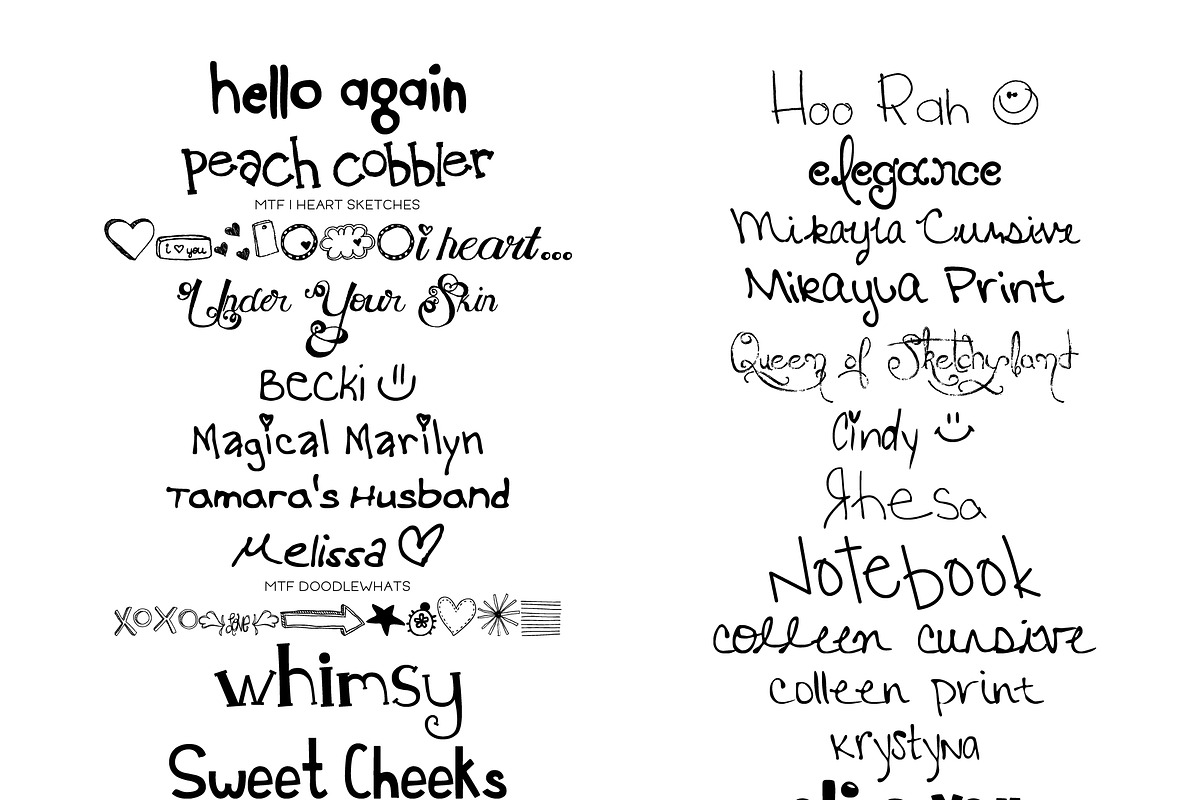 hello again
peach cobbler
MTF I HEART SKETCHES
i ♡ you i heart...
Under Your Skin
Becki
Magical Marilyn
Tamara's Husband
Melissa
MTF DOODLEWHATS
XOXO love
whimsy
Sweet Cheeks
Hoo Rah
elegance
Mikayla Cursive
Mikayla Print
Queen of Sketchyland
Cindy
Rhesa
Notebook
colleen cursive
colleen print
krystyna